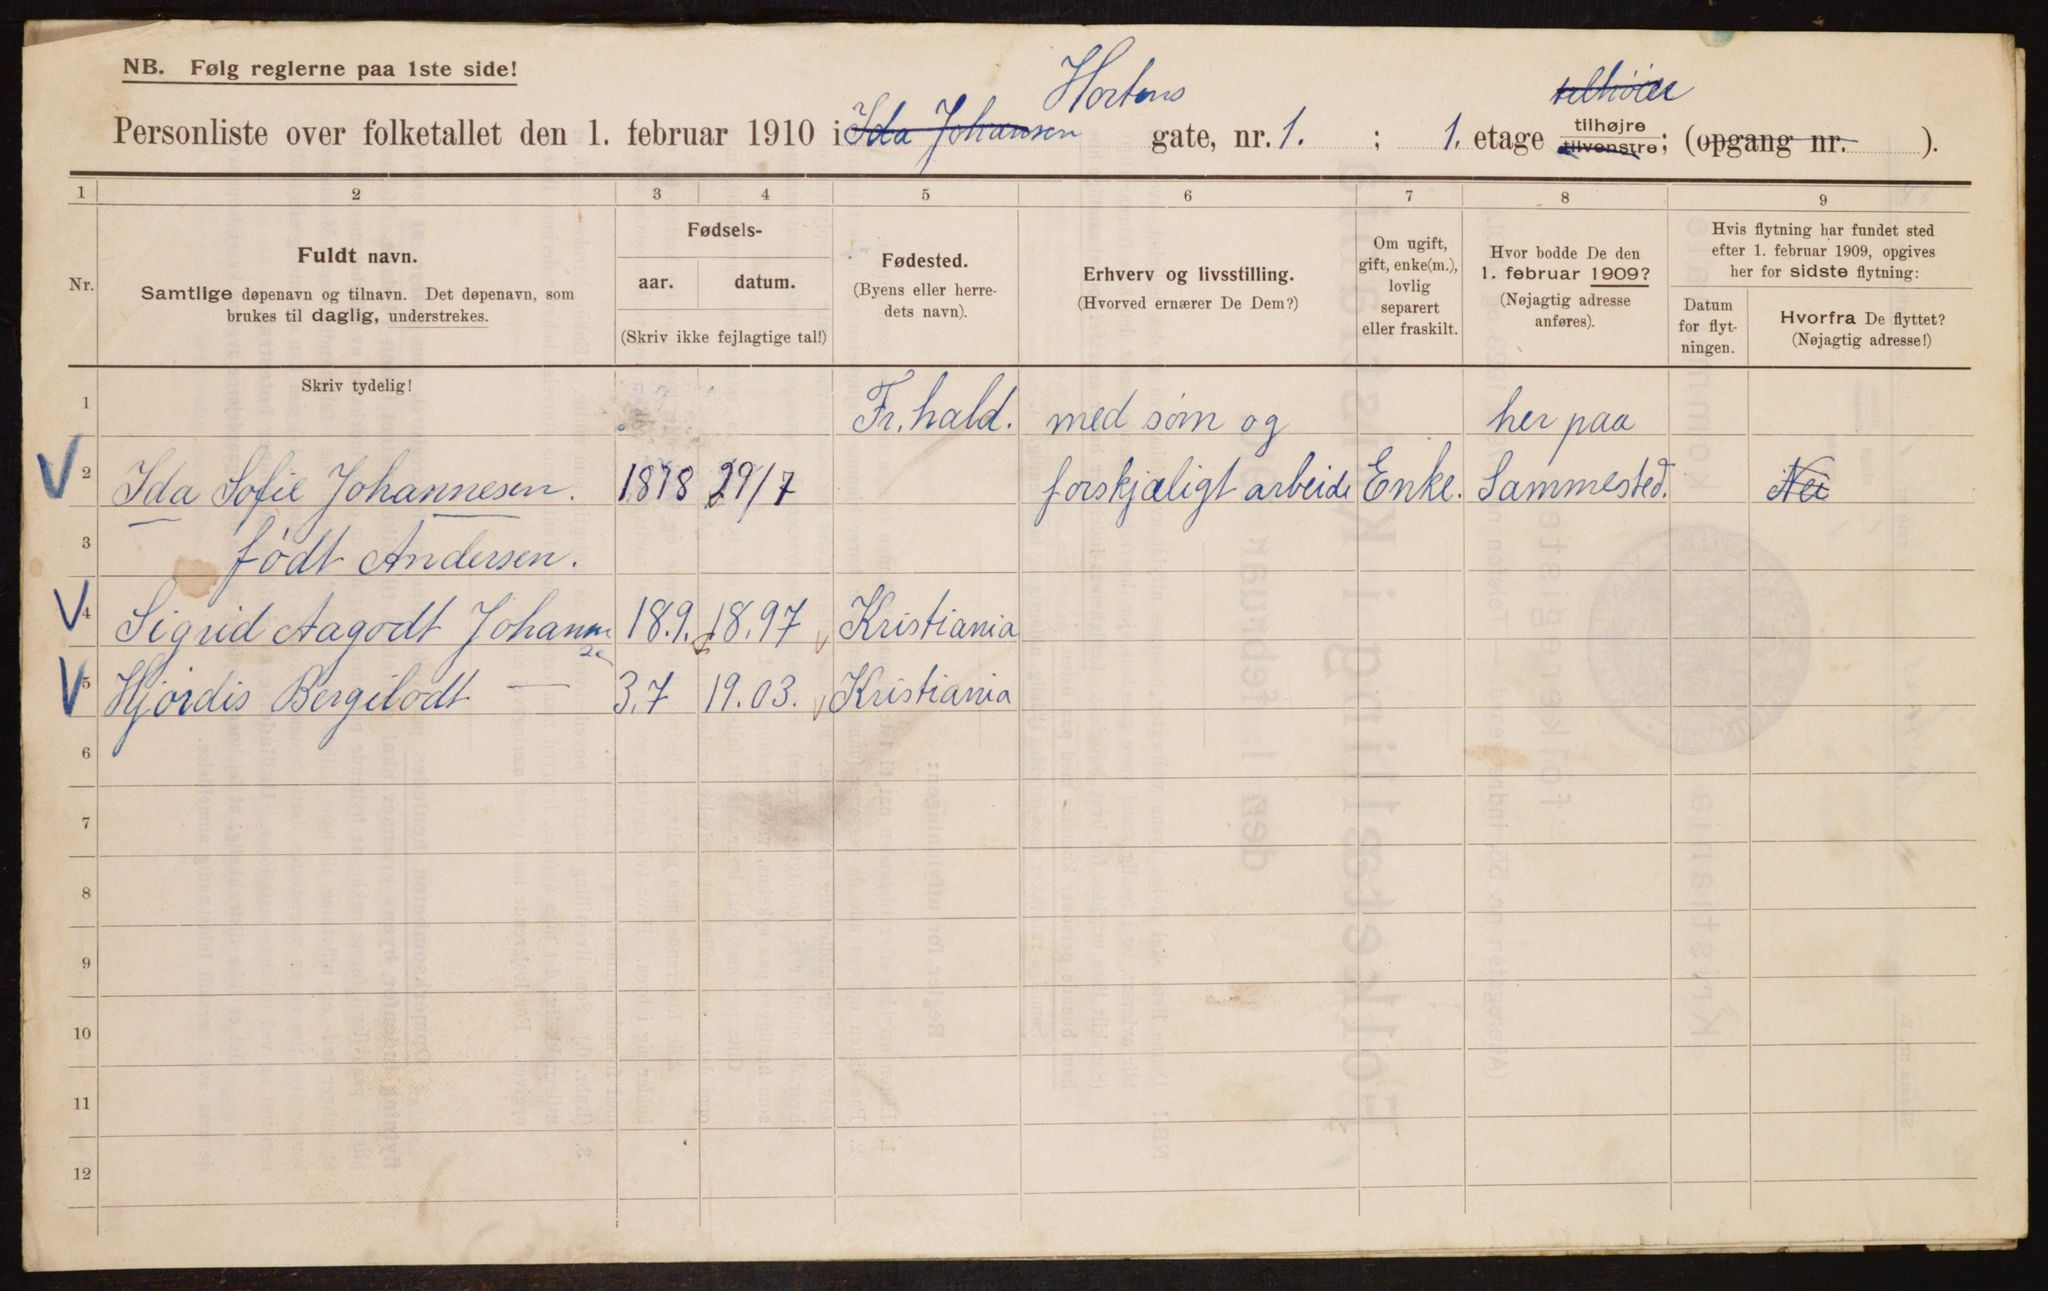 NB. Følg reglerne paa 1ste side!
Hortens
tilhöire
Personliste over folketallet den 1. februar 1910 i Ida Johansen gate, nr. 1. ; 1. etage tilhøjre tilvenstre; (opgang nr. ).
1 2 3 4 5 6 7 8 9
Nr.
Fuldt navn.
Samtlige døpenavn og tilnavn. Det døpenavn, som
brukes til daglig, understrekes.
Fødsels-
aar. datum.
(Skriv ikke fejlagtige tal!)
Fødested.
(Byens eller herre-
dets navn).
Erhverv og livsstilling.
(Hvorved ernærer De Dem?)
Om ugift,
gift, enke(m.),
lovlig
separert
eller fraskilt.
Hvor bodde De den
1. februar 1909?
(Nøjagtig adresse
anføres).
Hvis flytning har fundet sted
efter 1. februar 1909, opgives
her for sidste flytning:
Datum
for flyt-
ningen.
Hvorfra De flyttet?
(Nøjagtig adresse!)
Skriv tydelig!
1 Fr.hald. med søm og her paa
2 Ida Sofie Johannesen. 1878 29/7 forskjæligt arbeide Enke. Sammested. Nei
3 født Andersen.
4 Sigrid Aagodt Johanne 18.9. 18.97 Kristiania
sen
5 Hjördis Bergilodt — 3.7 19.03. Kristiania
6
7
8
9
10
11
12